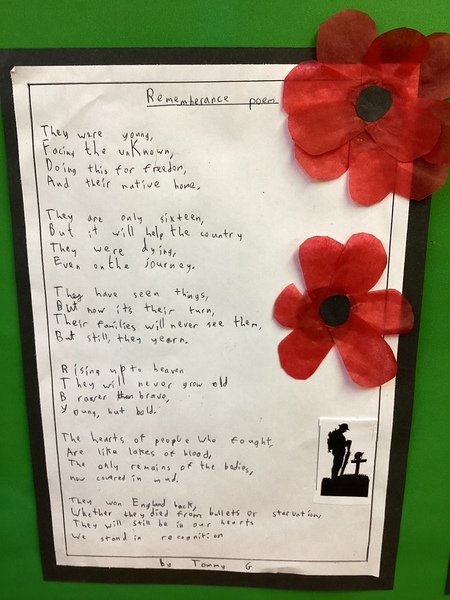 Rememberance poem
They were young,
Facing the unKnown,
Doing this for freedom,
And their native home.
They are only sixteen,
But it will help the country
They were dying,
Even on the journey.
They have seen things,
But now its their turn,
Their families will never see them,
But still, they yearn.
Rising up to heaven
They will never grow old
Braver than brave,
Young, but bold.
The hearts of people who fought,
Are like lakes of blood,
The only remains of the bodies,
now covered in mud.
They won England back,
Whether they died from bullets or starvation,
They will still be in our hearts
We stand in recognition
by Tommy G